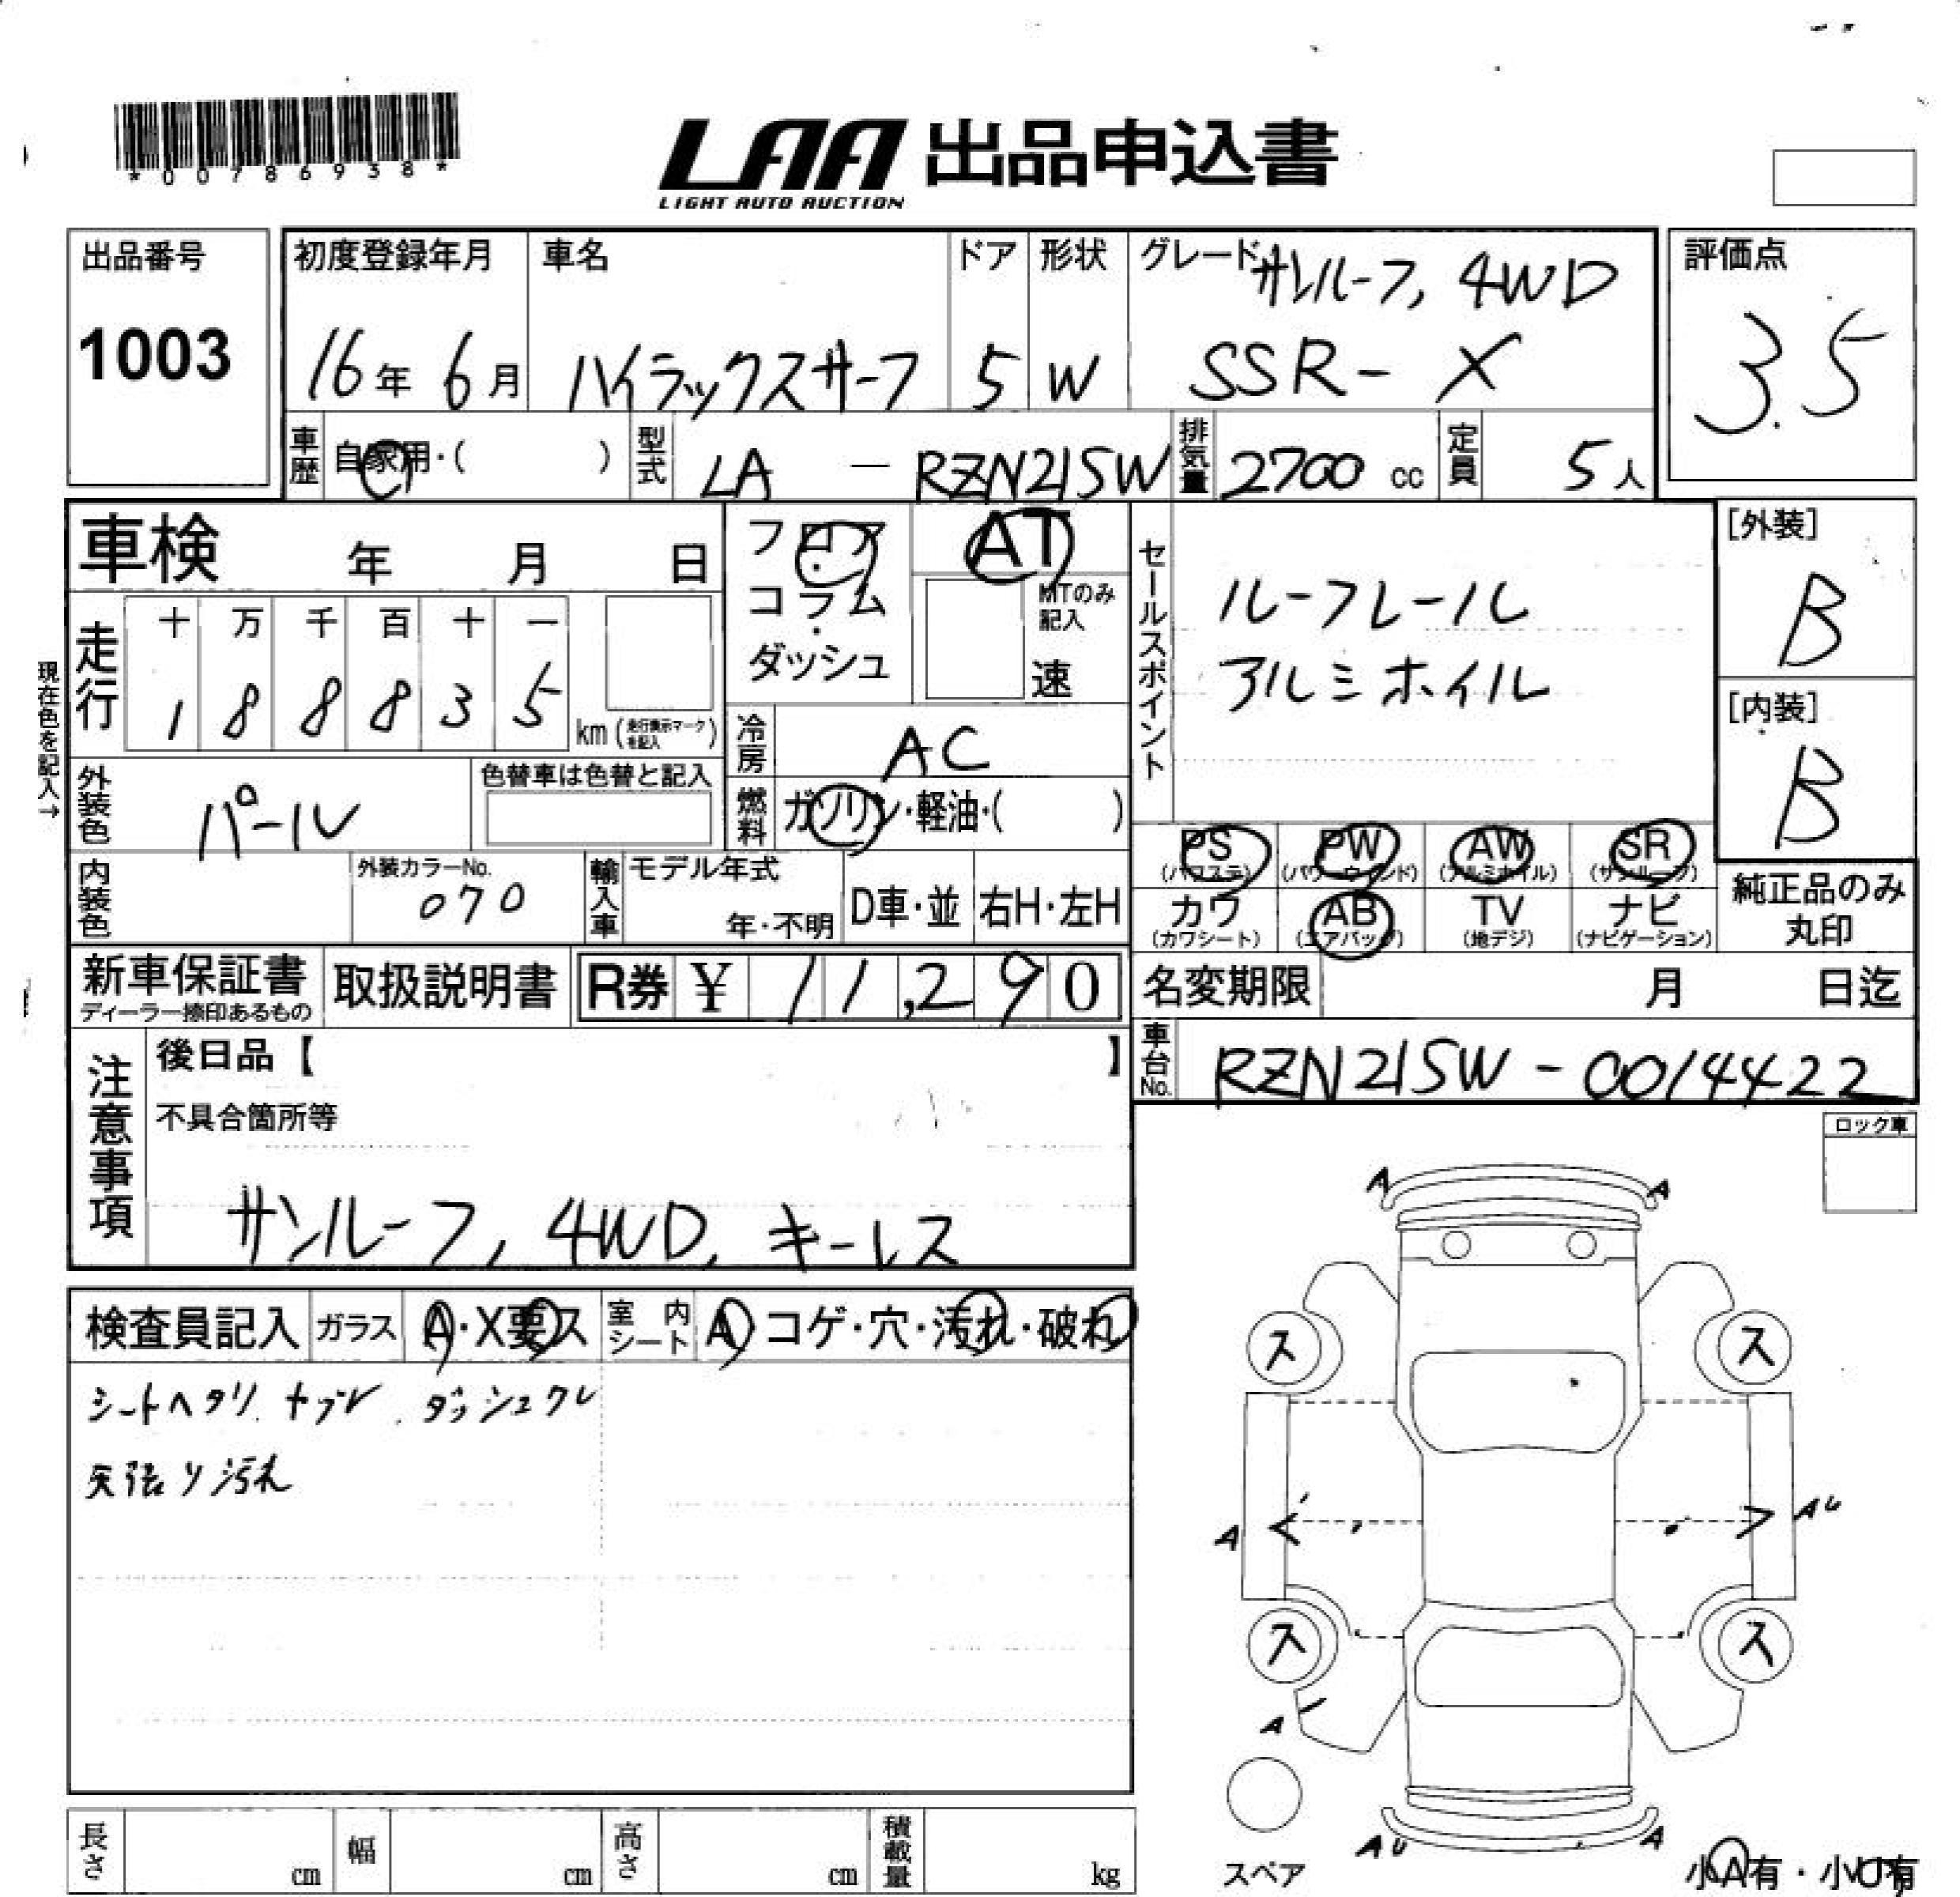 *00786938*
LAA 出品申込書
LIGHT AUTO AUCTION
出品番号
1003
初度登録年月
16年 6月
車名
ハイラックスサーフ
ドア
5
形状
W
グレード
サンルーフ, 4WD
SSR-X
評価点
3.5
車歴 自家用・( )
型式 LA - RZN215W
排気量 2700 cc
定員 5人
車検 年 月 日
フロア・コラム・ダッシュ
AT
MTのみ記入
速
セールスポイント
ルーフレール
アルミホイル
[外装]
B
[内装]
B
現在色を記入→
走行
十 万 千 百 十 一
1 8 8 8 3 5
km (走行換示マークを記入)
冷房 AC
燃料 ガソリン・軽油・( )
外装色 パール
色替車は色替と記入
内装色
外装カラーNo.
070
輸入車
モデル年式
年・不明
D車・並
右H・左H
PS (パワステ)
PW (パワーウィンド)
AW (アルミホイル)
SR (サンルーフ)
カワ (カワシート)
AB (エアバッグ)
TV (地デジ)
ナビ (ナビゲーション)
純正品のみ
丸印
新車保証書
ディーラー捺印あるもの
取扱説明書
R券 ¥ 11,290
名変期限 月 日迄
車台No. RZN215W-0014422
注意事項
後日品【 】
不具合箇所等
サンルーフ, 4WD, キーレス
ロック車
検査員記入
ガラス A・X要ス
室内シート A コゲ・穴・汚れ・破れ
シートヘタリ
天張り汚れ
A
A
ス
ス
A
AU
ス
ス
A
AU
A
スペア
小A有・小U有
長さ cm
幅 cm
高さ cm
積載量 kg